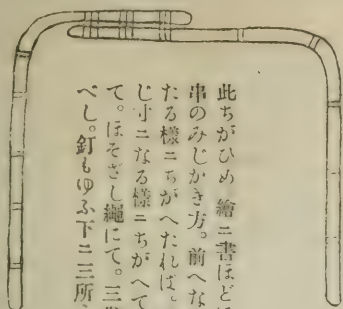 此ちがひめ繪ニ書ほどに
串のみじかき方。前へな
たる樣ニちがへたれば。
じ寸ニなる樣ニちがへて
て。ほそざし繩にて。三
べし。釘もゆふ下ニ三所